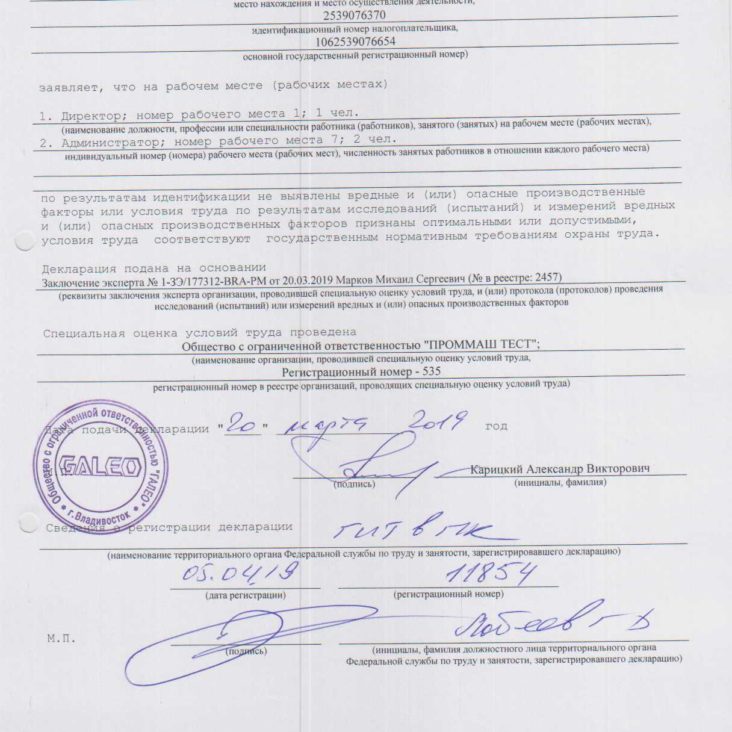 место нахождения и место осуществления деятельности,
2539076370
идентификационный номер налогоплательщика,
1062539076654
основной государственный регистрационный номер)
заявляет, что на рабочем месте (рабочих местах)
1. Директор; номер рабочего места 1; 1 чел.
(наименование должности, профессии или специальности работника (работников), занятого (занятых) на рабочем месте (рабочих местах),
2. Администратор; номер рабочего места 7; 2 чел.
индивидуальный номер (номера) рабочего места (рабочих мест), численность занятых работников в отношении каждого рабочего места)
по результатам идентификации не выявлены вредные и (или) опасные производственные
факторы или условия труда по результатам исследований (испытаний) и измерений вредных
и (или) опасных производственных факторов признаны оптимальными или допустимыми,
условия труда соответствуют государственным нормативным требованиям охраны труда.
Декларация подана на основании
Заключение эксперта № 1-ЗЭ/177312-BRA-PM от 20.03.2019 Марков Михаил Сергеевич (№ в реестре: 2457)
(реквизиты заключения эксперта организации, проводившей специальную оценку условий труда, и (или) протокола (протоколов) проведения
исследований (испытаний) или измерений вредных и (или) опасных производственных факторов
Специальная оценка условий труда проведена
Общество с ограниченной ответственностью "ПРОММАШ ТЕСТ";
(наименование организации, проводившей специальную оценку условий труда,
Регистрационный номер - 535
регистрационный номер в реестре организаций, проводящих специальную оценку условий труда)
Дата подачи декларации "20" марта 2019 год
Общество с ограниченной ответственностью "ГАЛЕО"
GALEO
г.Владивосток
Карицкий Александр Викторович
(подпись) (инициалы, фамилия)
Сведения о регистрации декларации ГИТ в ПК
(наименование территориального органа Федеральной службы по труду и занятости, зарегистрировавшего декларацию)
05.04.19 11854
(дата регистрации) (регистрационный номер)
М.П.
(подпись) (инициалы, фамилия должностного лица территориального органа
Федеральной службы по труду и занятости, зарегистрировавшего декларацию)